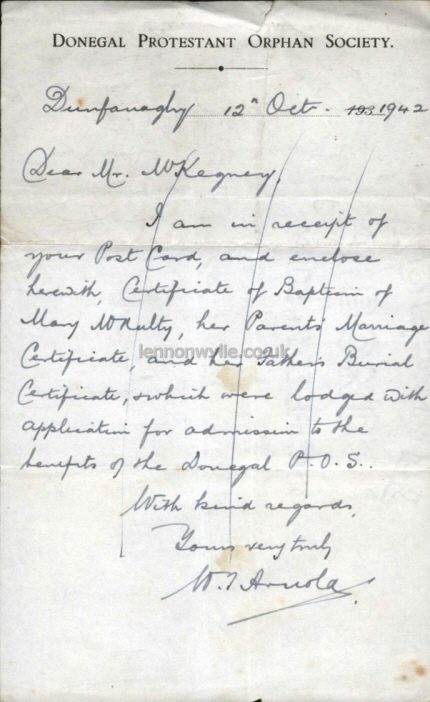 DONEGAL PROTESTANT ORPHAN SOCIETY.
Dunfanaghy 12th Oct. 193 1942
Dear Mr. McKegney,
I am in receipt of
your Post Card, and enclose
herewith, Certificate of Baptism of
Mary McNulty, her Parents' Marriage
Certificate, and her Father's Burial
lennonwylie.co.uk
Certificate, which were lodged with
application for admission to the
benefits of the Donegal P.O.S..
With kind regards,
Yours very truly
W. J Arnold